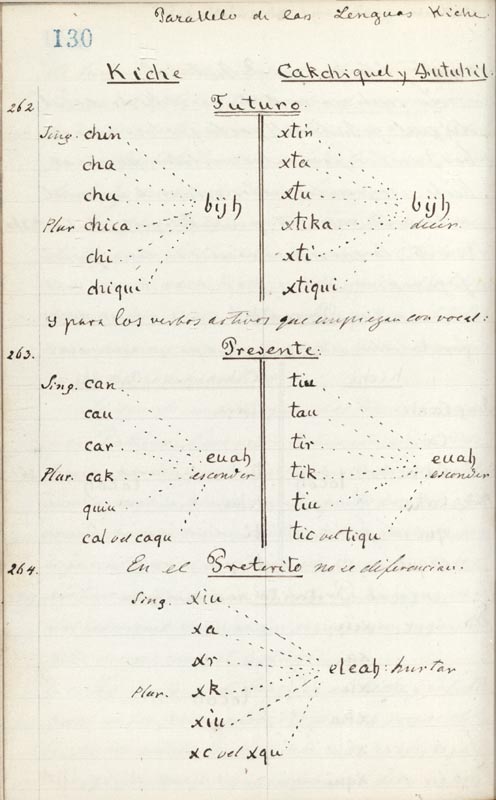 Parallelo de las Lenguas Kiche
130
Kiche Cakchiquel y Zutuhil.
262 Futuro.
Sing. chin xtin
cha xta
chu xtu
bijh bijh
Plur chica xtika decir.
chi xti
chiqui xtiqui
y para los verbos activos que empiezan con vocal:
263. Presente:
Sing. can tiu
cau tau
car tir
euah euah
Plur. cak esconder tik esconder
quiu tiu
cal vel caqu tic vel tiqu
264. En el Preterito no se diferencian.
Sing. xiu
xa
xr eleah: hurtar
Plur. xk
xiu
xc vel xqu